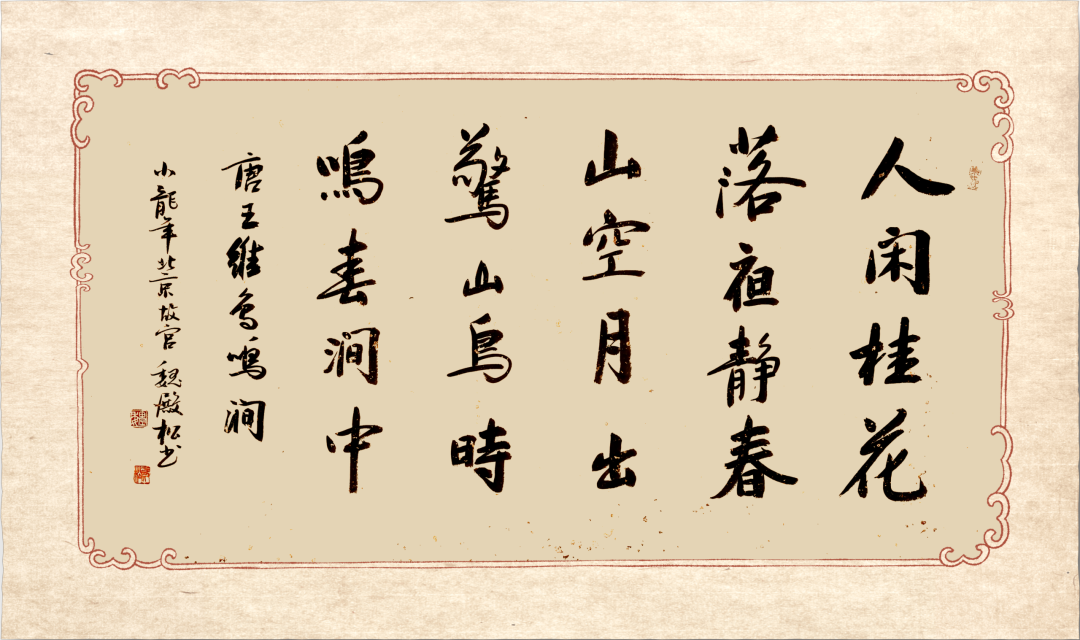 人闲桂花
落夜静春
山空月出
驚山鳥時
鳴春涧中
唐王維鳥鳴涧
小龍年北京故宫魏殿松书